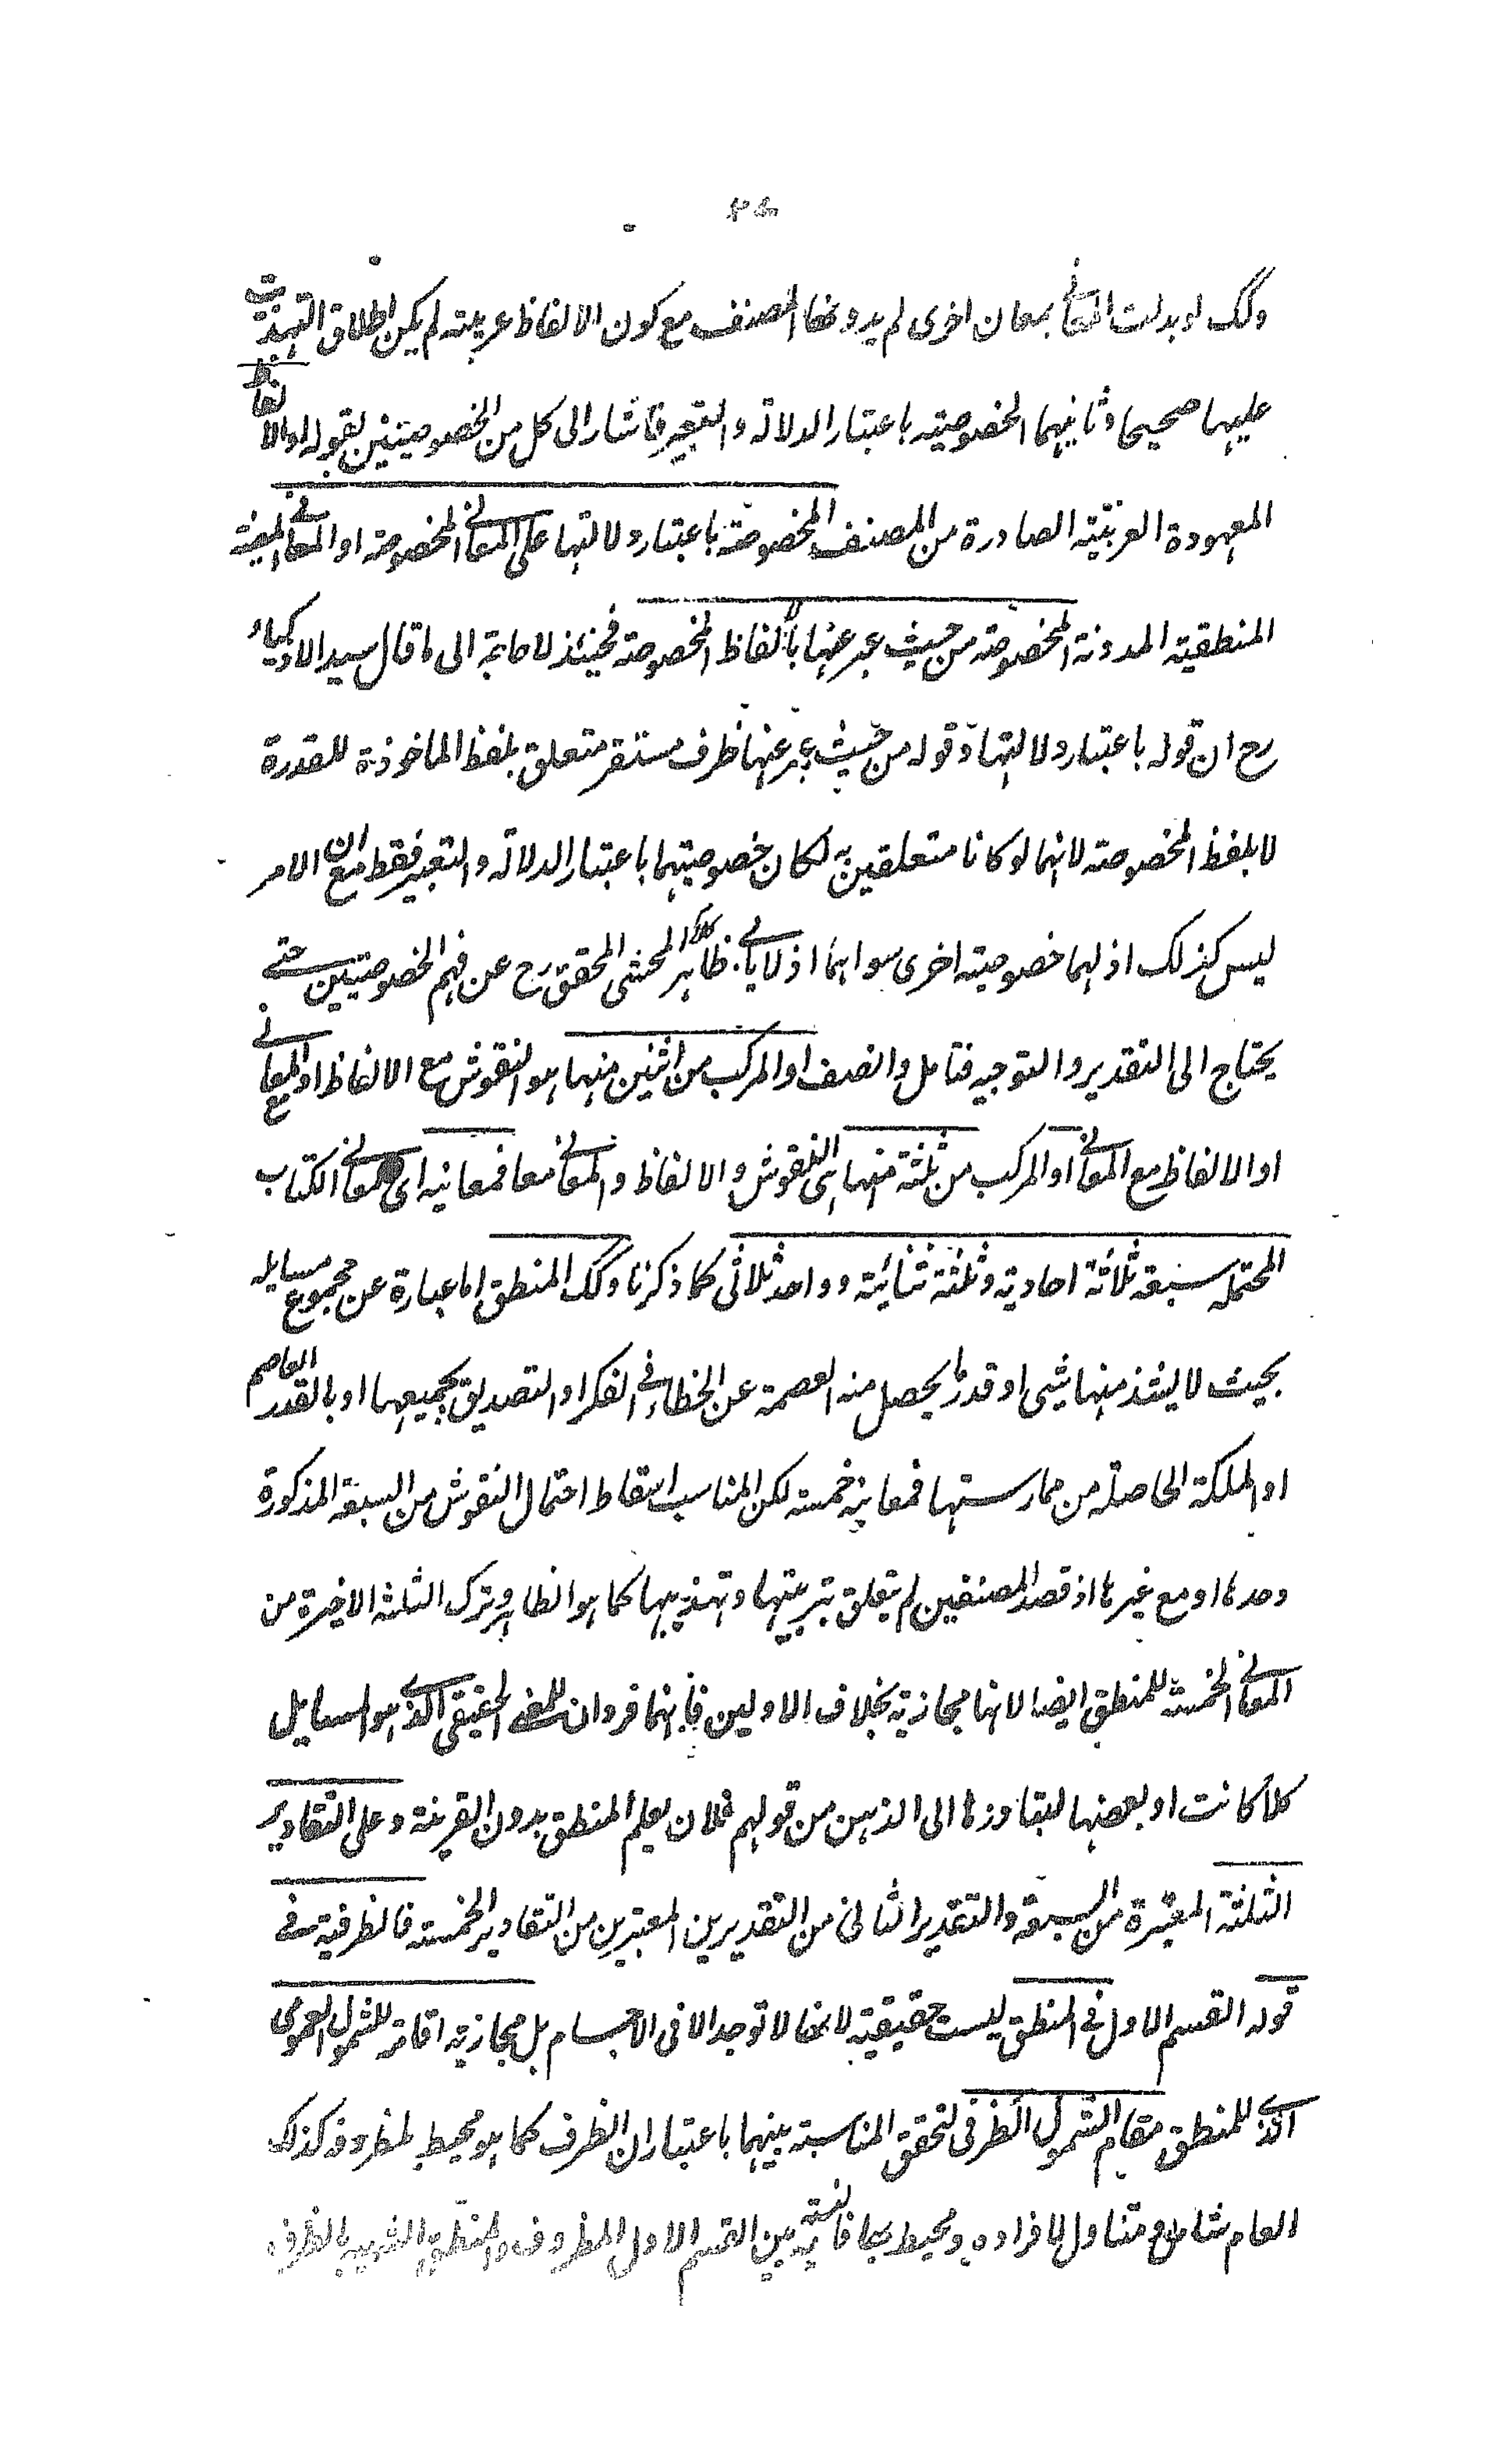 وكك لو بدلت المعاني بمعان اخرى لم يدونها المصنف مع كون الالفاظ عربيته لم يكن اطلاق التهذيب
عليها صحيحا وثانيهما الخصوصيته باعتبار الدلالة والتعبير فاشار الى كل من الخصوصيتين بقوله او الالفاظ
المعهودة العربيّته الصادرة من المصنف المخصوصته باعتبار دلالتها على المعاني المخصوصته او المعاني المعينة
المنطقيته المدونة المخصوصته من حيث عبر عنها بالفاظ المخصوصته فحينئذ لا حاجة الى ما قال سيد الاذكياء
رح ان قوله باعتبار دلالتها وقوله من حيث عبر عنها ظرف مستقر متعلق بلفظ الماخوذة المقدرة
لا بلفظ المخصوصته لانهما لو كانا متعلقين به لكان خصوصيتهما باعتبار الدلالة والتعبير فقط مع ان الامر
ليس كذلك اذ لهما خصوصيته اخرى سواهما اذ لا يابى ظاهر كلام المحشى المحقق رح عن فهم الخصوصيتين حتى
يحتاج الى التقدير والتوجيه فتامل وانصف او المركب من اثنين منها هو النقوش مع الالفاظ او مع المعاني
او الالفاظ مع المعاني او المركب من ثلثة منها هى النقوش والالفاظ والمعاني معا فمعانيه اى معاني الكتاب
المحتمله سبعة ثلاثة احاديته وثلثة ثنائيته وواحد ثلاثى كما ذكرنا وكك المنطق اما عبارة عن مجموع مسايله
بحيث لا يشذ منها شى او قدر ما يحصل منه العصمة عن الخطاء في الفكر او التصديق بجميعها او بالقدر العاصم
او الملكة الحاصلة من ممارستها فمعانيه خمسته لكن المناسب اسقاط احتمال النقوش من السبعة المذكورة
وحدها او مع غيرها اذ قصد المصنفين لم يتعلق بتربيتها وتهذيبها كما هو الظاهر وترك الثلثة الاخيرة من
المعاني الخمسته للمنطق ايضا لانها مجازية بخلاف الاولين فانهما فردان للمعنى الحقيقي الذي هو المسايل
كلا كانت او بعضها لتبادرها الى الذهن من قولهم فلان يعلم المنطق بدون القرينة وعلى التقادير
الثلثة المعتبرة من السبعة والتقدير الثاني من التقديرين المعتبرين من التقادير الخمسته فالظرفية في
قوله القسم الاول في المنطق ليست حقيقية لانها لا توجد الا في الاجسام بل مجازية اقامة للشمول العمومي
الذي للمنطق مقام الشمول الظرفي لتحقق المناسبة بينهما باعتبار ان الظرف كما هو محيط بمظروفه كذلك
العام شامل ومتناول لافراده ومحيط بها فالنسبة بين القسم الاول المظروف والمنطق الشبيه بالظرف